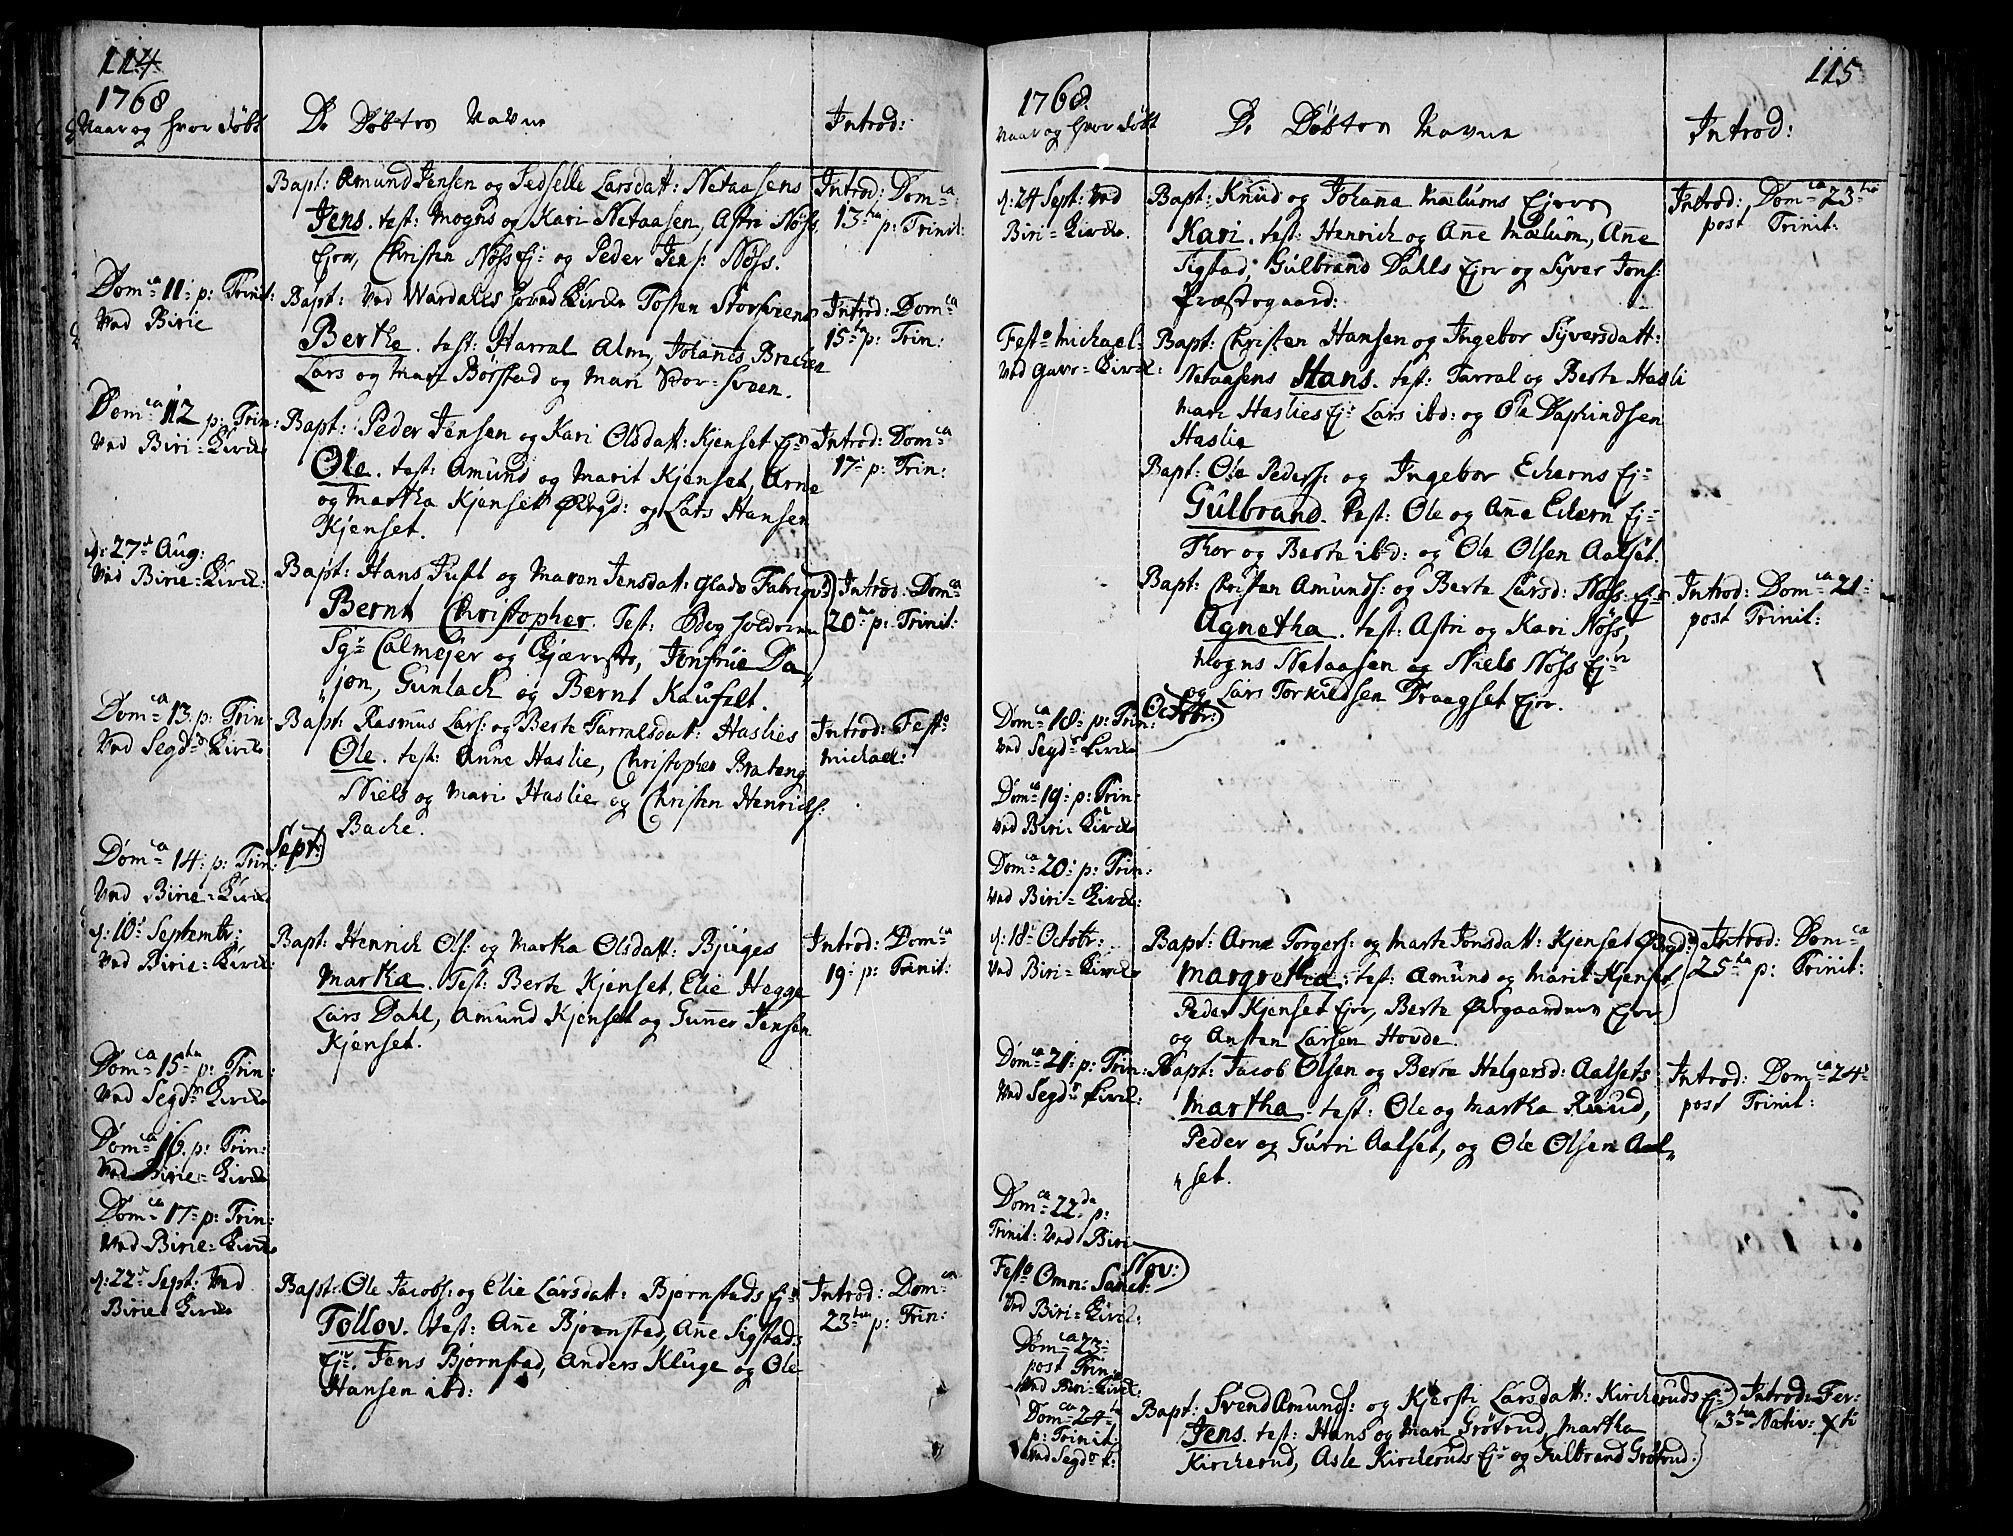 114
1768
Naar og hvor døbt
De Døbtes Navne
Introd:
Bapt: Amund Jensen og Sedselle Larsdatt: Netaasens
Jens. test: Mogns og Kari Netaasen, Astri Nöss
Ejer, Christen Nöss Ej: og Peder Jens: Nöss.
Introd: Dom:ca
13:tia p: Trinit:
Dom:ca 11: p: Trinit:
Ved Birie
Bapt: Ved Wardahls hoved Kircke Tosten Storsveens
Berthe. test: Harral Alm, Johannes Bracken
Lars og Mari Börstad og Mari Stor-Sveen.
Introd: Dom:ca
15:ta p: Trin:
Dom:ca 12 p: Trin:
Ved Biri-Kircke
Bapt: Peder Jensen og Kari Olsdatt: Kjenset Ej:
Ole. test: Amund og Marit Kjenset, Arne
og Martha Kjenset Øvrgd: og Lars Hansen
Kjenset.
Introd: Dom:ca
17: p: Trin:
d: 27:de Aug:
Ved Birie-Kircke:
Bapt: Hans Just og Maren Jensdatt: Glads Fabriqu:
Bernt Christopher. Test:
Sgr Calmejer og, Jonfrue Da„
„jon, Gunlach og Bernt Kaufelt.
Introd: Dom:ca
20:me p: Trinit:
Dom:ca 13. p: Trin:
Ved Segd:s Kircke
Bapt: Rasmus Lars: og Berte Tarrelsdatt: Haslies
Ole. test: Anne Haslie, Christopher Brateng
Niels og Mari Haslie og Christen Henrichs:
Bache.
Introd: Festo
Michael:
Sept:
Dom:ca 14: p: Trin:
Ved Birie-Kircke
d: 10:de Septembr:
Ved Birie-Kircke:
Bapt: Henrich Ols: og Martha Olsdatt: Bjuges
Martha. Test: Berte Kjenset, Elie Hegge
Lars Dahl, Amund Kjenset og Gunner Jensen
Kjenset.
Introd: Dom:ca
19: p: Trinit:
Dom:ca 15:ta p: Trin:
Ved Segd:s Kircke
Dom:ca 16. p: Trin:
Ved Birie-Kircke
Dom:ca 17: p: Trin:
Ved Birie-Kircke
d: 22:de Sept: Ved
Birie Kircke
Bapt: Ole Jacobs: og Elie Larsdatt: Bjørnstads Ej:
Tollov. test: Ane Bjørnstad, Ane Sigstads
Ej:r. Jens Bjørnstad, Anders Kluge og Ole
Hansen ibd:
Introd: Dom:ca
23:tia p: Trin:
115
1768.
Naar og hvor døbt
De Døbtes Navne
Introd:
d: 24 Sept: Ved
Biri-Kircke.
Bapt: Knud og Johanna Mælums Ejere
Kari. test: Henrich og Ane Mælum, Ane
Sigstad, Gulbrand Dahls Ejer og Syver Jons:
Præstegaard:
Introd: Dom:ca 23:tia
post Trinit:
Festo Michael:
Ved Gave-Kirck:
Bapt: Christen Hansen og Ingebor Syversdatt:
Netaasens Hans. test: Tarral og Berte Hasli
Mari Haslies Ej: Lars ibd: og Ola Daphindsen
Haslie
Bapt: Ole Peders: og Ingebor Eckerns Ej:
Gulbrand. Test: Ole og Ane Eckern Ej:
Thor og Berte ibd: og Ole Olsen Aalset.
Bapt: Christen Amunds: og Berte Larsd: Nöss: Ej:
Agnetha. test: Astri og Kari Nöss,
Mogns Netaasen og Niels Nöss Ej:
og Lars Torkieldsen Draagset Ejer.
Introd: Dom:ca 21:
post Trinit:
Octobr:
Dom:ca 18: p: Trin:
Ved Segd:s Kircke
Dom:ca 19: p: Trin:
Ved Biri-Kircke
Dom:ca 20: p: Trin:
Ved Biri-Kirck:
d: 18: Octobr:
Ved Biri-Kircke
Bapt: Arne Torgers: og Marte Jonsdatt: Kjenset Øvgd:
Margretha. test: Amund og Marit Kjenset
Peder Kjenset Ejer, Berte Øvrgaardens Ejer
og Ansten Larsen Hovde.
Introd: Dom:ca
25:ta p: Trinit:
Dom:ca 21: p: Trin:
Ved Segd:s Kirck:
Bapt: Jacob Olsen og Berte Helgersd: Aalsets
Martha. test: Ole og Martha Ruud,
Peder og Gurri Aalset, og Ole Olsen Aal„
„set.
Introd: Dom:ca 24:
post Trinit:
Dom:ca 22:da p:
Trinit: Ved Biri
Nov:
Festo Omn: Sanct:
Ved Biri-Kirck:
Dom:ca 23:
post Trin:
Ved Biri-Kirck:
Dom:ca 24:
p: Trinit:
Ved Segd:s K:
Bapt: Svend Amunds: og Kjersti Larsdatt: Kirckeruds Ej:
Jens. test: Hans og Mari Grötrud, Martha
Kirckerud, Asle Kirckeruds Ej: og Gulbrand Grötrud:
Introd: Fer:
3:tia Nativ: Xti